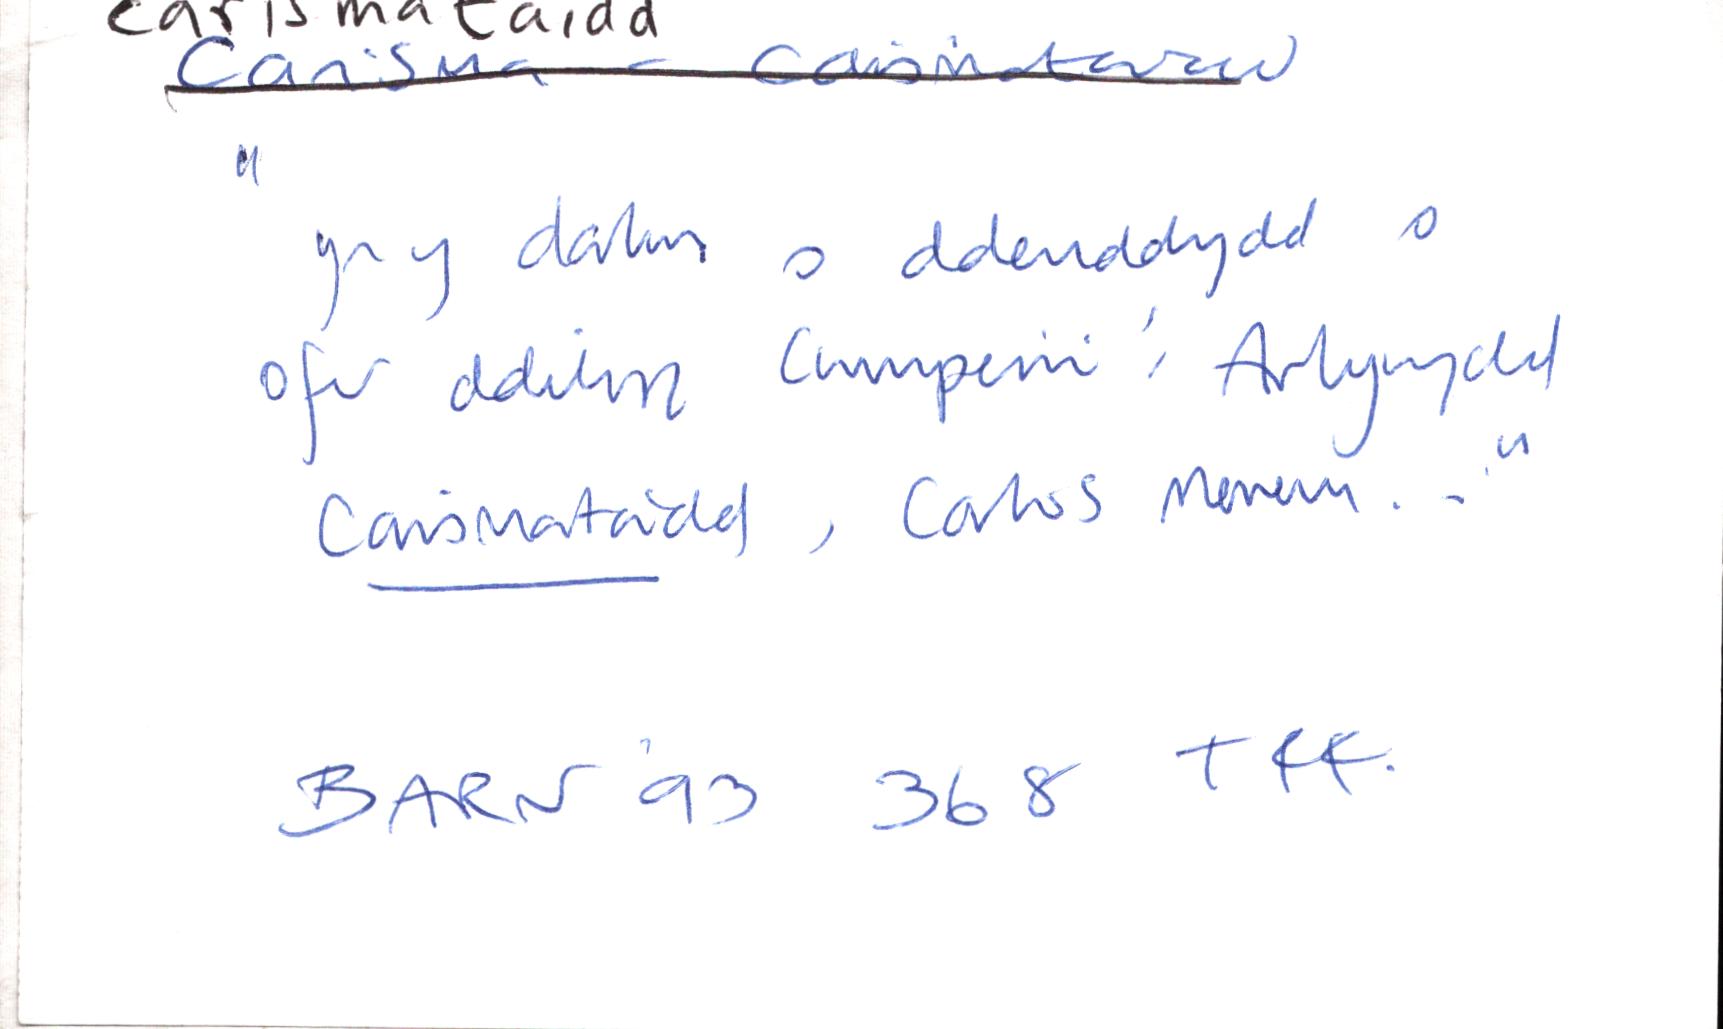 carismataidd
Carisma -
"
yn y darlun o ddeuddydd o
ofer ddilyn Cwmpeini'r Arlywydd
Carismataidd, Carlos Menem. . . "
BARN '93 368 T44.